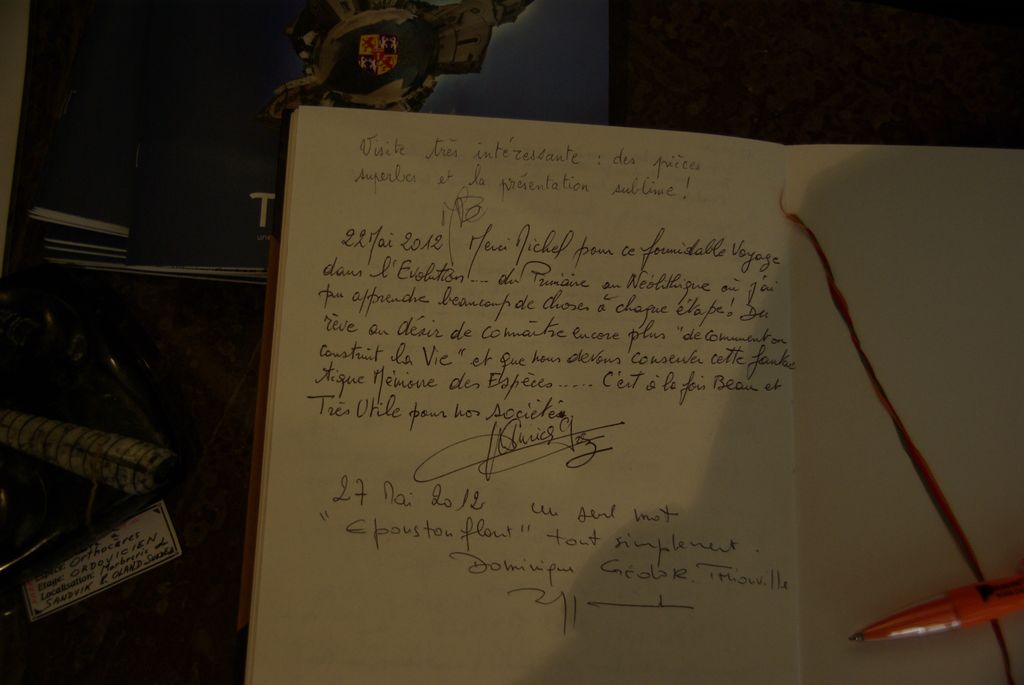 Visite très intéressante : des pièces
superbes et la présentation sublime !
22 Mai 2012 Merci Michel pour ce formidable Voyage
dans l'Evolution... du Primaire au Néolithique où j'ai
pu apprendre beaucoup de choses à chaque étape! Du
rêve au désir de connaître encore plus "de comment on
construit la Vie" et que nous devons conserver cette fantas
tique Mémoire des Espèces..... C'est à la fois Beau et
Très Utile pour nos sociétés
27 Mai 2012 un seul mot
"Epoustouflant" tout simplement.
Dominique Thionville
T
Orthocères
Etage: ORDOVICIEN
Localisation: Marbrerie de
SANDVIK